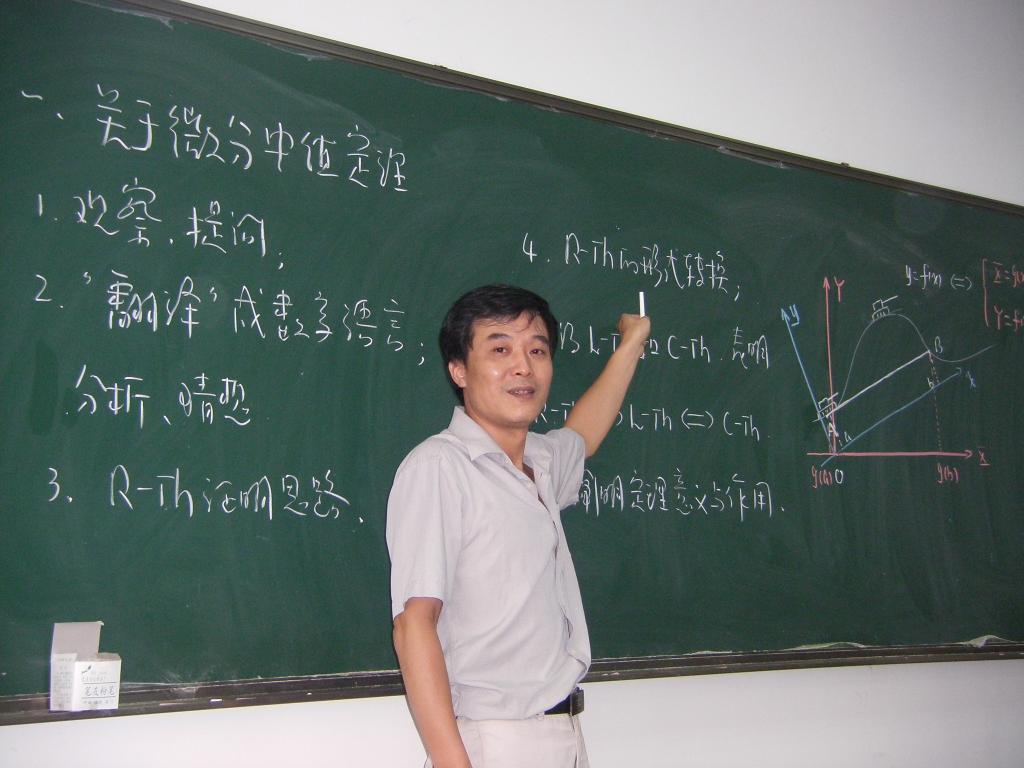 一、关于微分中值定理
1. 观察、提问;
2. "翻译"成数学语言;
分析、猜想
3. R-Th 证明思路.
4. R-Th的形式转换;
L-Th C-Th. 表明
L-Th <=> C-Th.
阐明定理意义与作用.
y=f(x) <=>
Y
y
B
x
A
a
b
g(a) O
g(b)
X
笔友粉笔